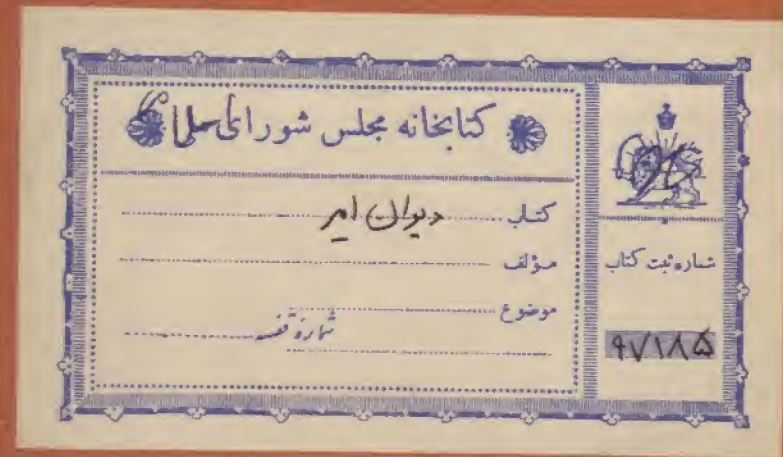 کتابخانه مجلس شورای ملی
کتاب دیوان امیر
مؤلف
موضوع
شماره قفسه
شماره ثبت کتاب
۹۷۱۸۵